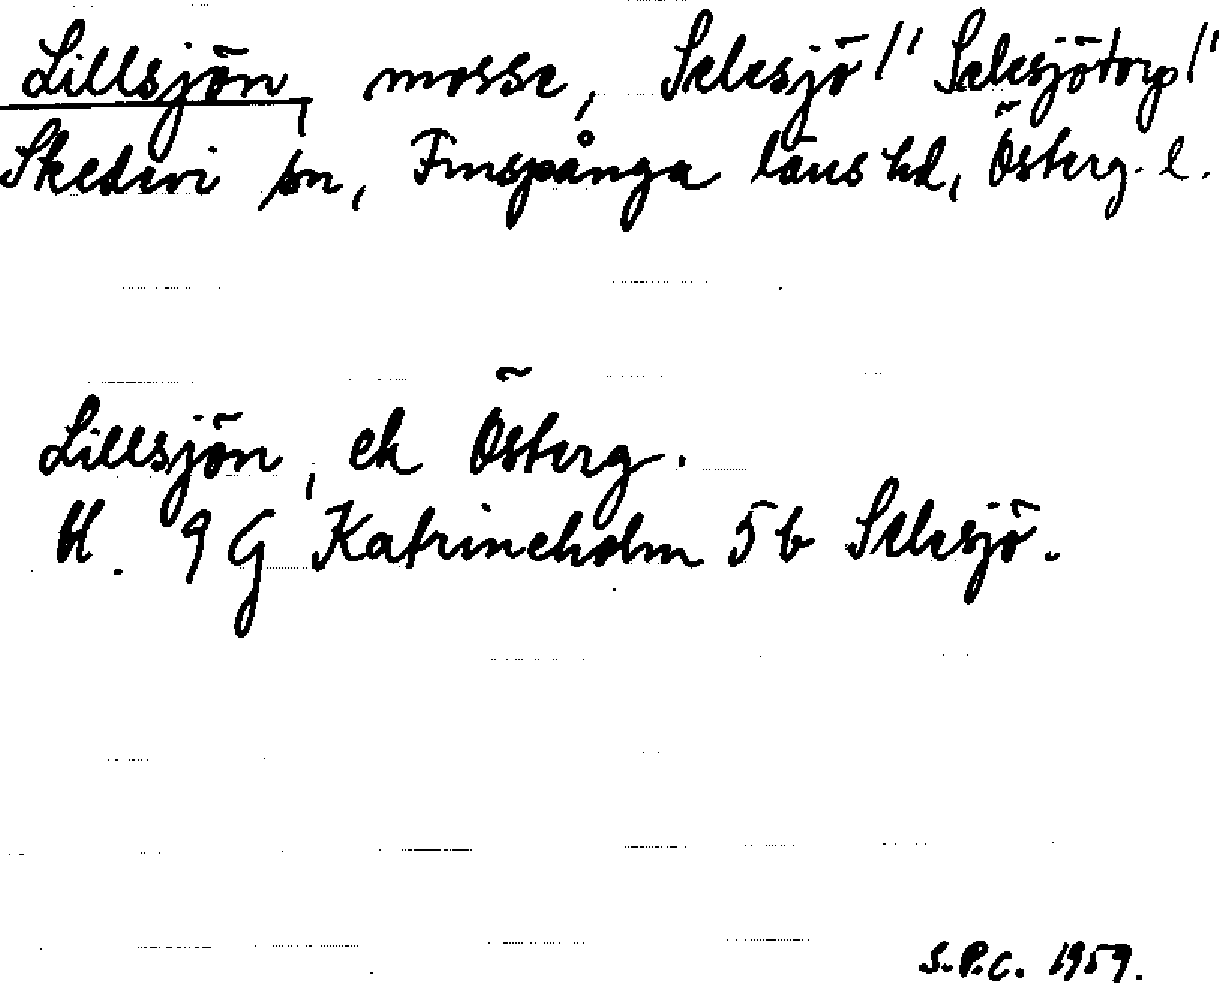 Lillsjön, mosse, Sälesjö/' Sälesjötorp/'
Skedevi sn, Finspånga läns hd, Österg. l.
Lillsjön, ek Österg.
H. 9 G Katrineholm 5 b Sälesjö.
S.P.C. 1959.